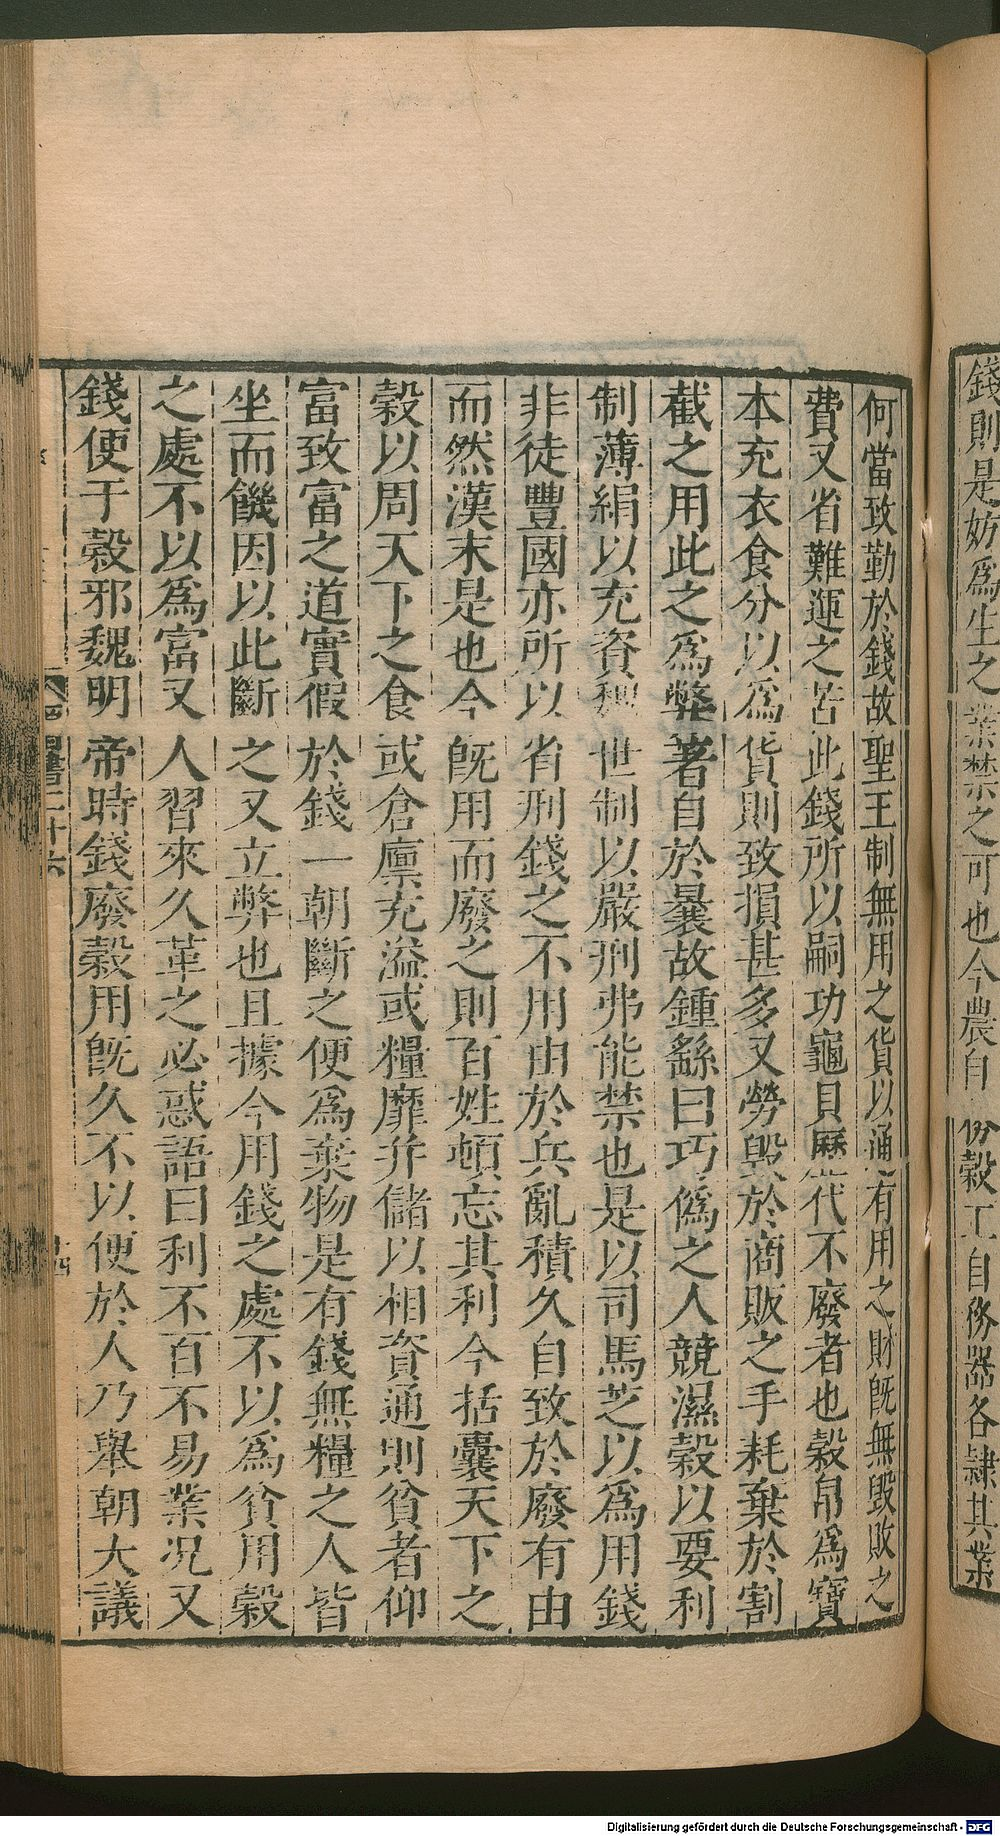 錢則是妨爲生之業禁之可也今農自務穀工自務器各隷其業
何當致勤於錢故聖王制無用之貨以通有用之財旣無毀敗之
費又省難運之苦此錢所以嗣功龜貝歷代不廢者也穀帛爲寶
本充衣食分以爲貨則致損甚多又勞毀於商販之手耗棄於割
截之用此之爲弊著自於曩故鍾繇曰巧僞之人競濕穀以要利
制薄絹以充資魏世制以嚴刑弗能禁也是以司馬芝以爲用錢
非徒豐國亦所以省刑錢之不用由於兵亂積久自致於廢有由
而然漢末是也今旣用而廢之則百姓頓忘其利今括囊天下之
穀以周天下之食或倉廩充溢或糧靡并儲以相資通則貧者仰
富致富之道實假於錢一朝斷之便爲棄物是有錢無糧之人皆
坐而饑因以此斷之又立弊也且據今用錢之處不以爲貧用穀
之處不以爲富又人習來久革之必惑語曰利不百不易業況又
錢便于穀邪魏明帝時錢廢穀用旣久不以便於人乃舉朝大議
二十六
十四
Digitalisierung gefördert durch die Deutsche Forschungsgemeinschaft - DFG